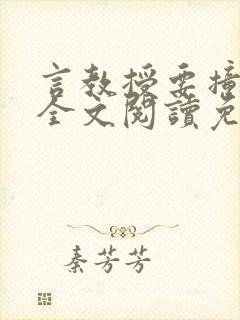 言教授要撞
全文閱讀免
秦芳芳